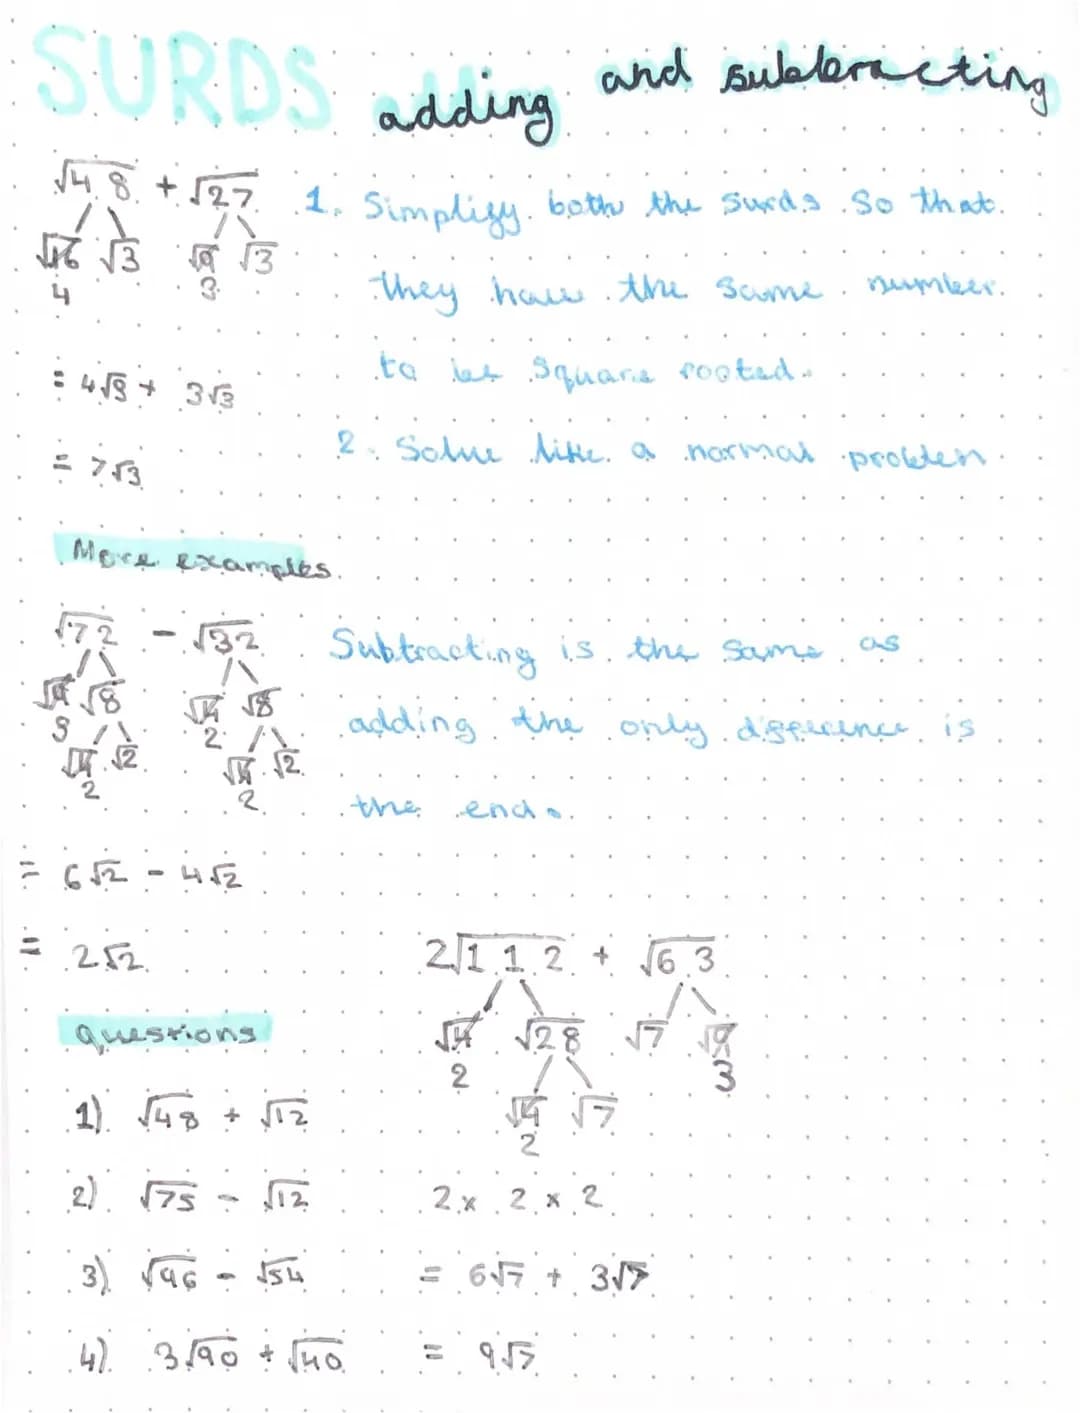 SURDS adding and subtracting
√48 + √27
√16 √3 √9 √3
4 3
= 4√3 + 3√3
= 7√3
1. Simplify both the surds so that
they have the same number
to be square rooted.
2. Solve like a normal problem
More examples.
√72 - √32
√9 √8 √4 √8
3 2
√4 √2 √4 √2
2 2
= 6√2 - 4√2
= 2√2
Subtracting is the same as
adding the only difference is
the end.
questions
1) √48 + √12
2) √75 - √12
3) √96 - √54
4) 3√90 + √40
2√112 + √63
√4 √28 √7 √9
2 3
√4 √7
2
2 × 2 × 2
= 6√7 + 3√7
= 9√7